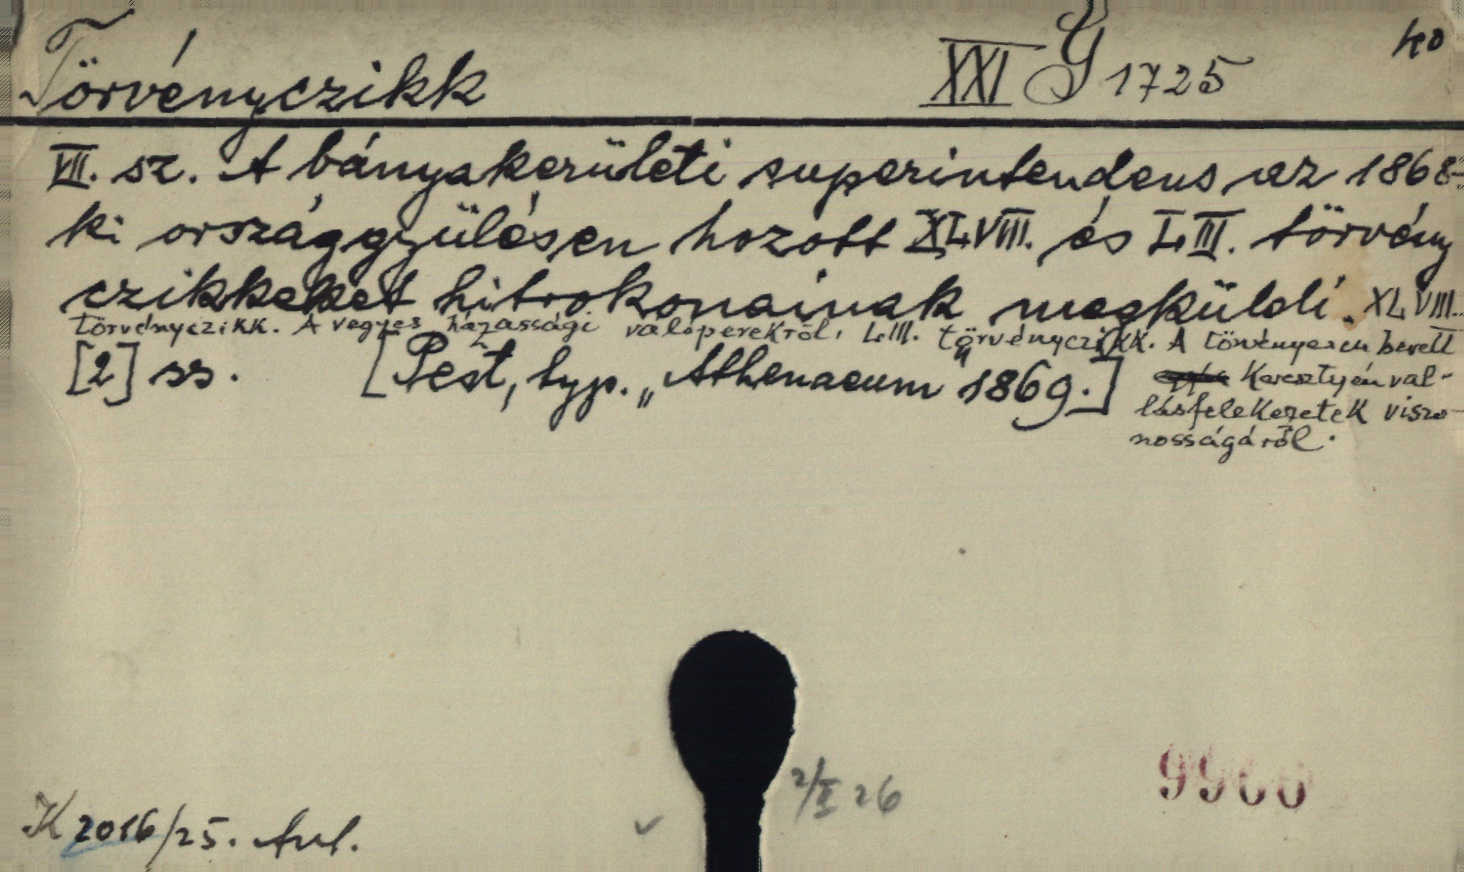 Törvényczikk XXI G 1725 ko
VII. sz. A bányakerületi superintendens az 1868-
ki országgyülésen hozott XLVIII. és LIII. törvény
czikkeket hitrokonainak megküldi. XLVIII.
törvényczikk. A vegyes házassági válóperekről, LIII. törvényczikk. A törvényesen bevett
[2] ss. [Pest, typ. „Athenaeum" 1869.] Keresztyén val-
lásfelekezetek viszo-
nosságáról.
2/I 26
9966
K 2016/25. Ant.